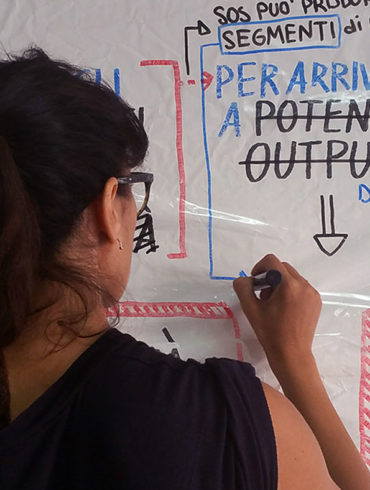 SOS PUO' PRODUR
SEGMENTI di
PER ARRIV
A POTEN
OUTPU